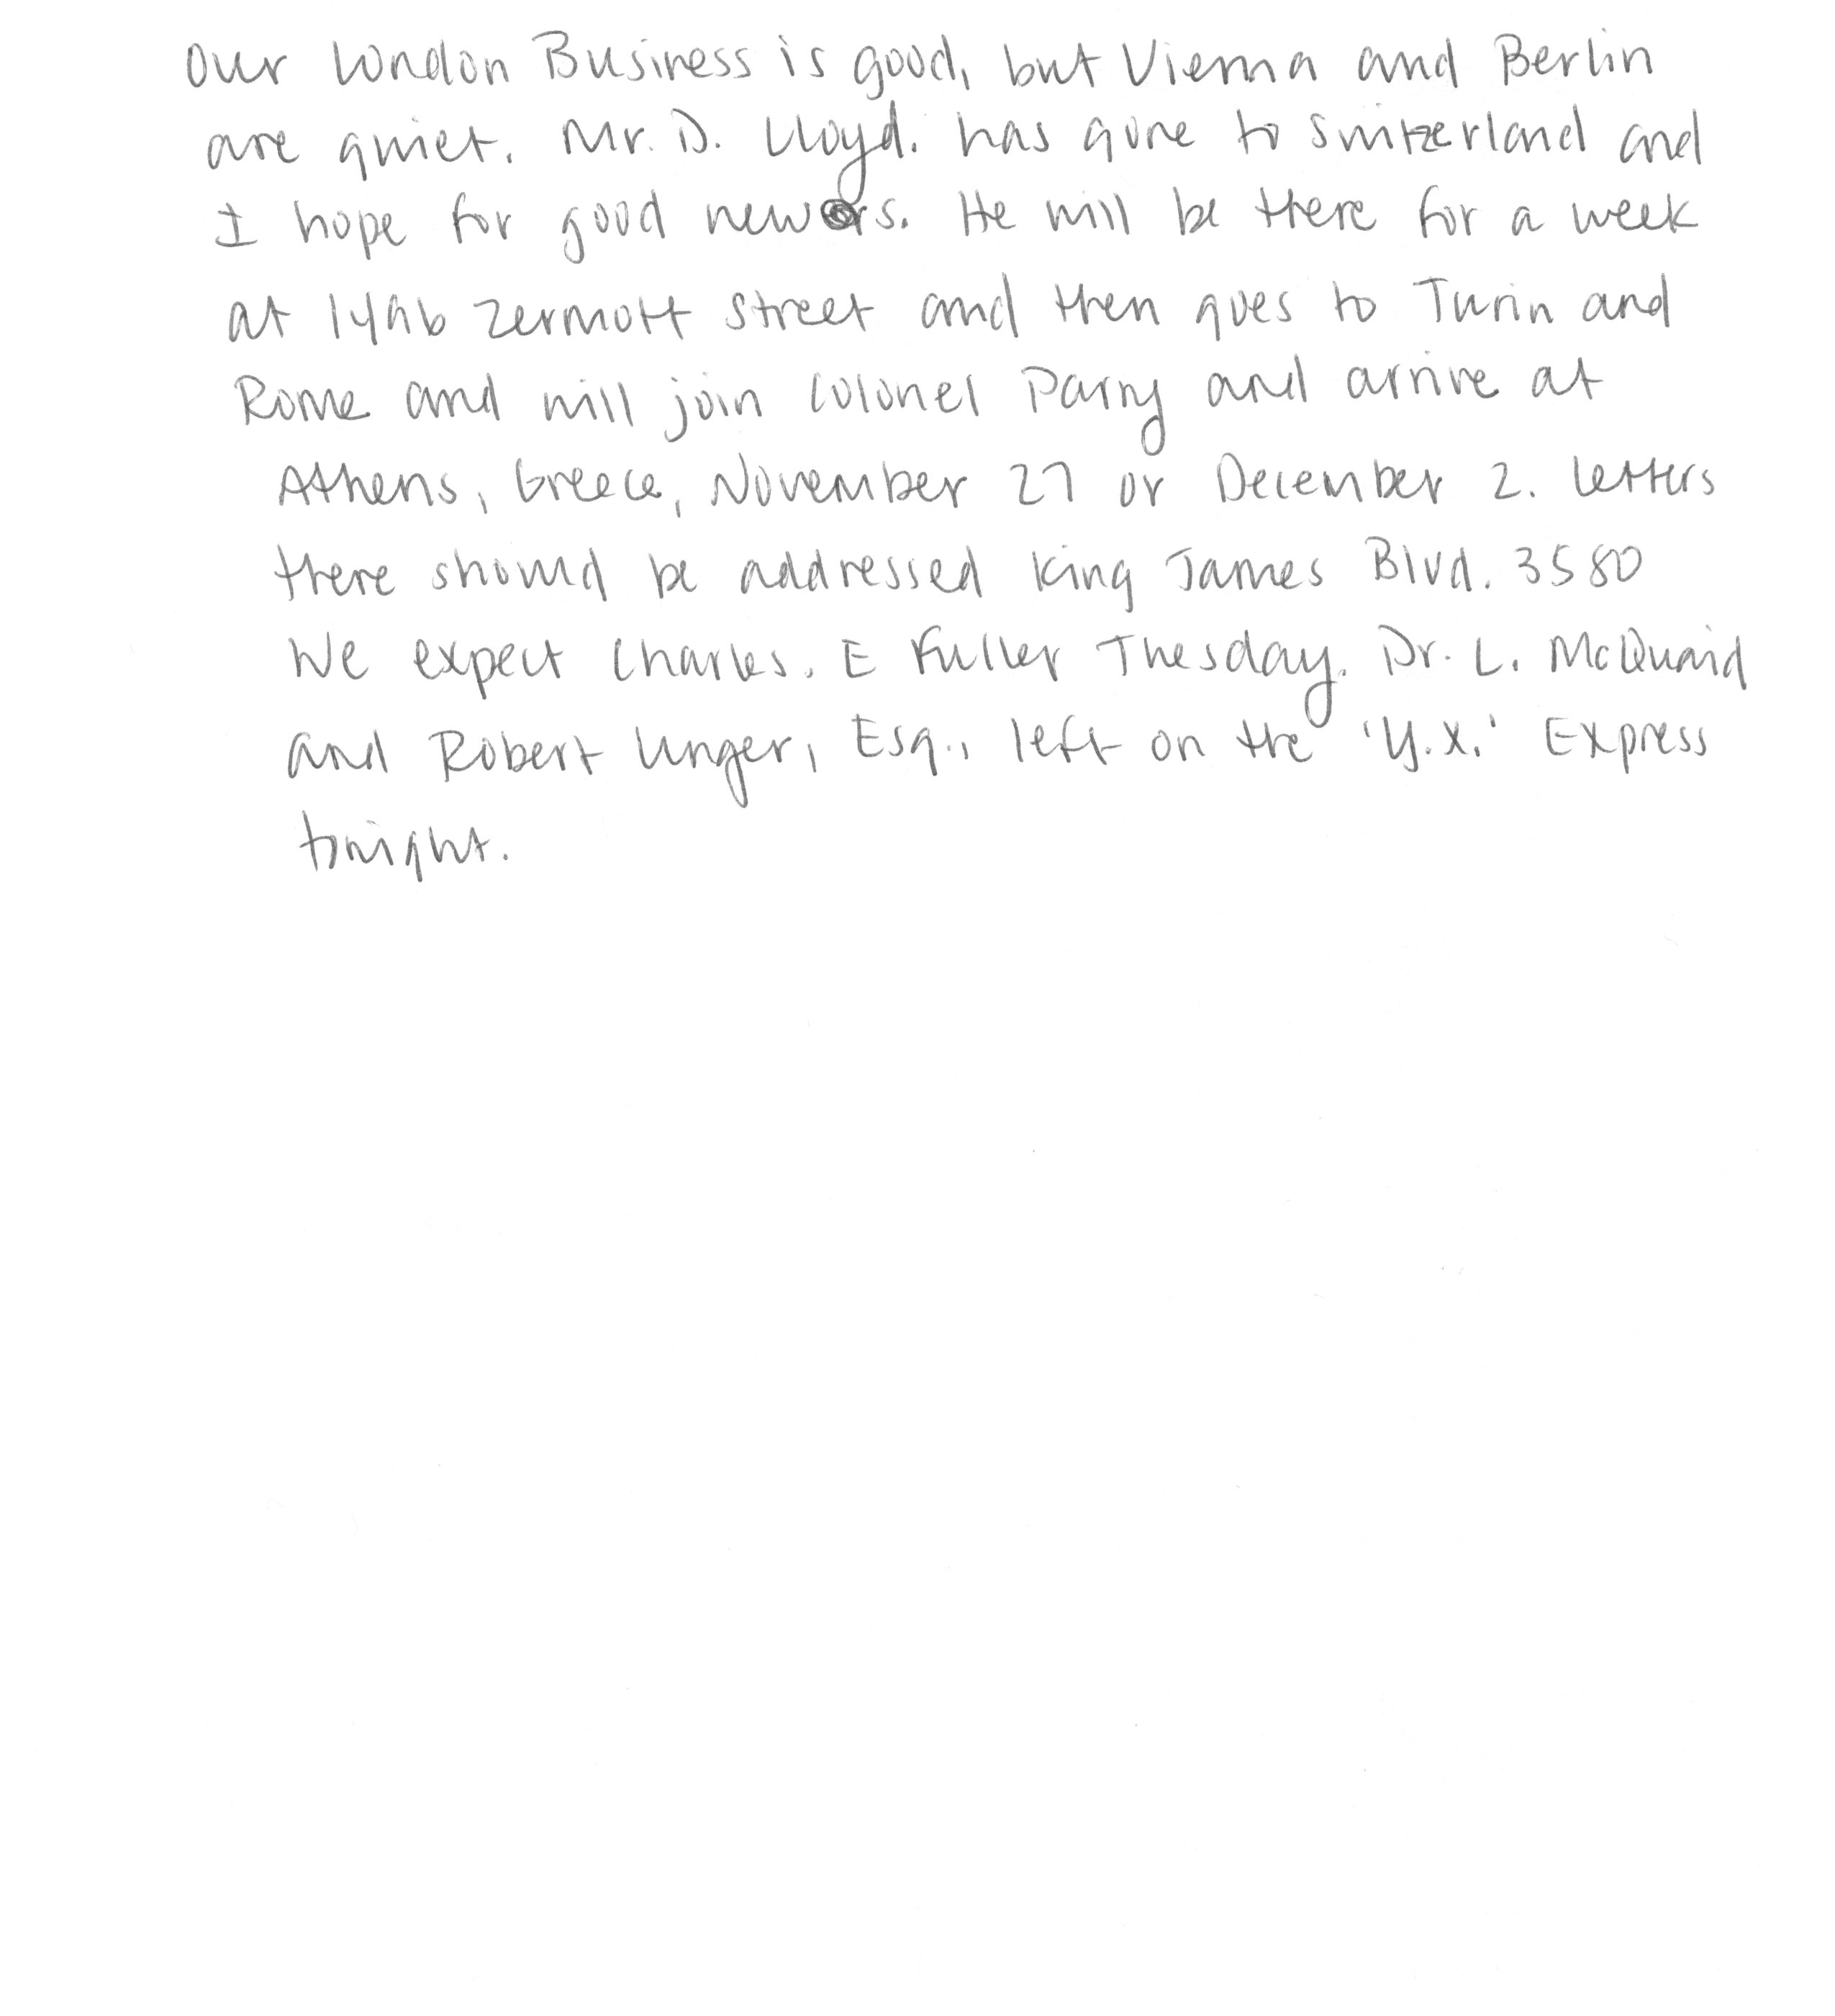 Our London Business is good, but Vienna and Berlin
are quiet. Mr. D. Lloyd. has gone to Switzerland and
I hope for good news. He will be there for a week
at 1496 Zermott Street and then goes to Turin and
Rome and will join Colonel Parry and arrive at
Athens, Greece, November 27 or December 2. Letters
there should be addressed King James Blvd. 3580
We expect Charles. E Fuller Thesday. Dr. L. McQuaid
and Robert Unger, Esq., left on the 'Y.X.' Express
tonight.